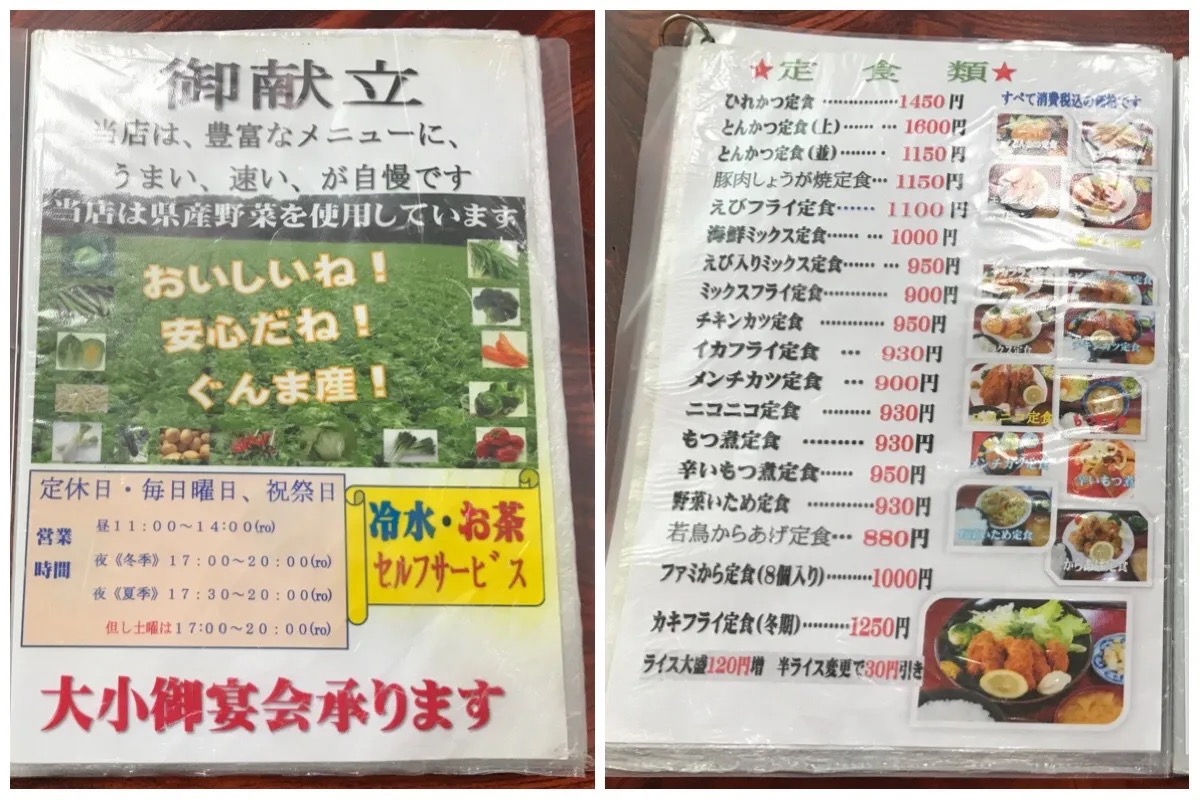 御献立
当店は、豊富なメニューに、
うまい、速い、が自慢です
当店は県産野菜を使用しています
おいしいね!
安心だね!
ぐんま産!
定休日・毎日曜日、祝祭日
営業時間
昼11:00~14:00(ro)
夜《冬季》17:00~20:00(ro)
夜《夏季》17:30~20:00(ro)
但し土曜は17:00~20:00(ro)
冷水・お茶
セルフサービス
大小御宴会承ります
★定食類★
すべて消費税込の価格です
ひれかつ定食……………1450円
とんかつ定食(上)…… …1600円
とんかつ定食(並)……・1150円
豚肉しょうが焼定食…1150円
えびフライ定食……1100円
海鮮ミックス定食…… …1000円
えび入りミックス定食…… …950円
ミックスフライ定食…………900円
チキンカツ定食 …………950円
イカフライ定食 …930円
メンチカツ定食 …900円
ニコニコ定食 ………930円
もつ煮定食 ………930円
辛いもつ煮定食……950円
野菜いため定食 ………930円
若鳥からあげ定食…880円
ファミから定食(8個入り)………1000円
カキフライ定食(冬期)………1250円
ライス大盛120円増 半ライス変更で30円引き
とんかつ定食
チキンカツ定食
ニコニコ定食
メンチカツ定食
辛いもつ煮
野菜いため定食
からあげ定食